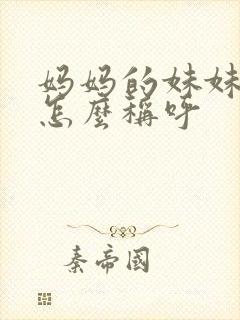 妈妈的妹妹
怎麼稱呼
秦帝國